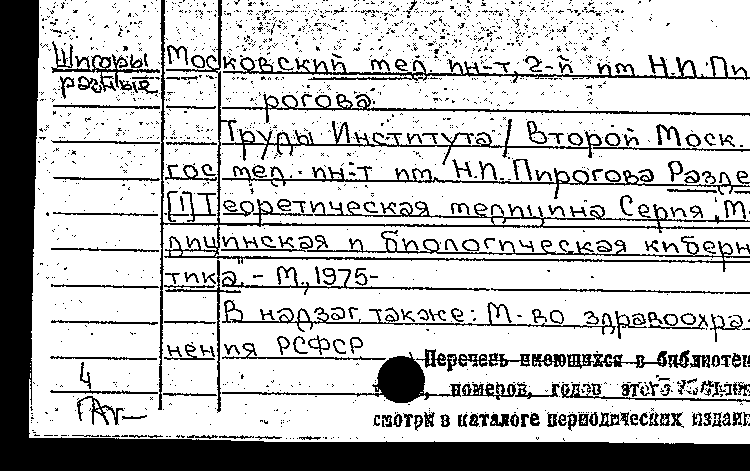 Шифры Московский мед. ин-т, 2-й им. Н.И. Пи-
разные рогова.
Труды Института / Второй Моск.
гос. мед. ин-т им. Н.И. Пирогова Разде
[1] Теоретическая медицина Серия „М-
дицинская и биологическая киберн
тика". - М., 1975-
В надзаг. также: М-во здравоохра-
нения РСФСР
Перечень имеющихся в библиотек
4 номеров, годов этого
смотри в каталоге периодических издани